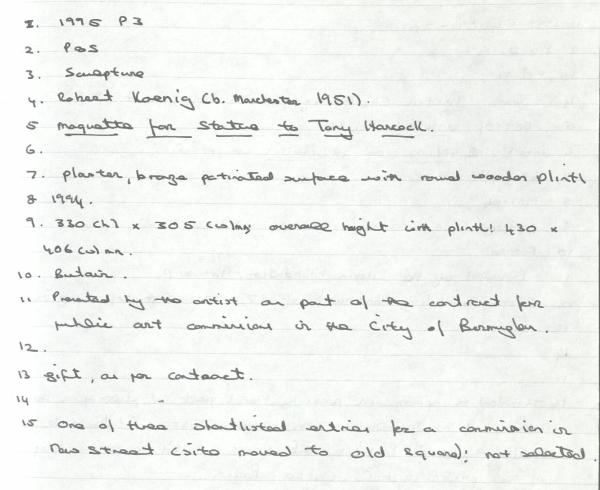 1. 1995 P3
2. P&S
3. Sculpture
4. Robert Koenig (b. Manchester 1951).
5 maquette for statue to Tony Hancock.
6.
7. plaster, bronze patinated surface with round wooden plinth
8 1994.
9. 330 (h) x 305 (w)mm; overall height with plinth: 430 x
406 (w) mm.
10. Britain.
11 Presented by the artist as part of the contract for
public art commissions in the City of Birmingham.
12.
13 gift, as per contract.
14
15 One of three shortlisted entries for a commission in
New Street (site moved to Old Square); not selected.